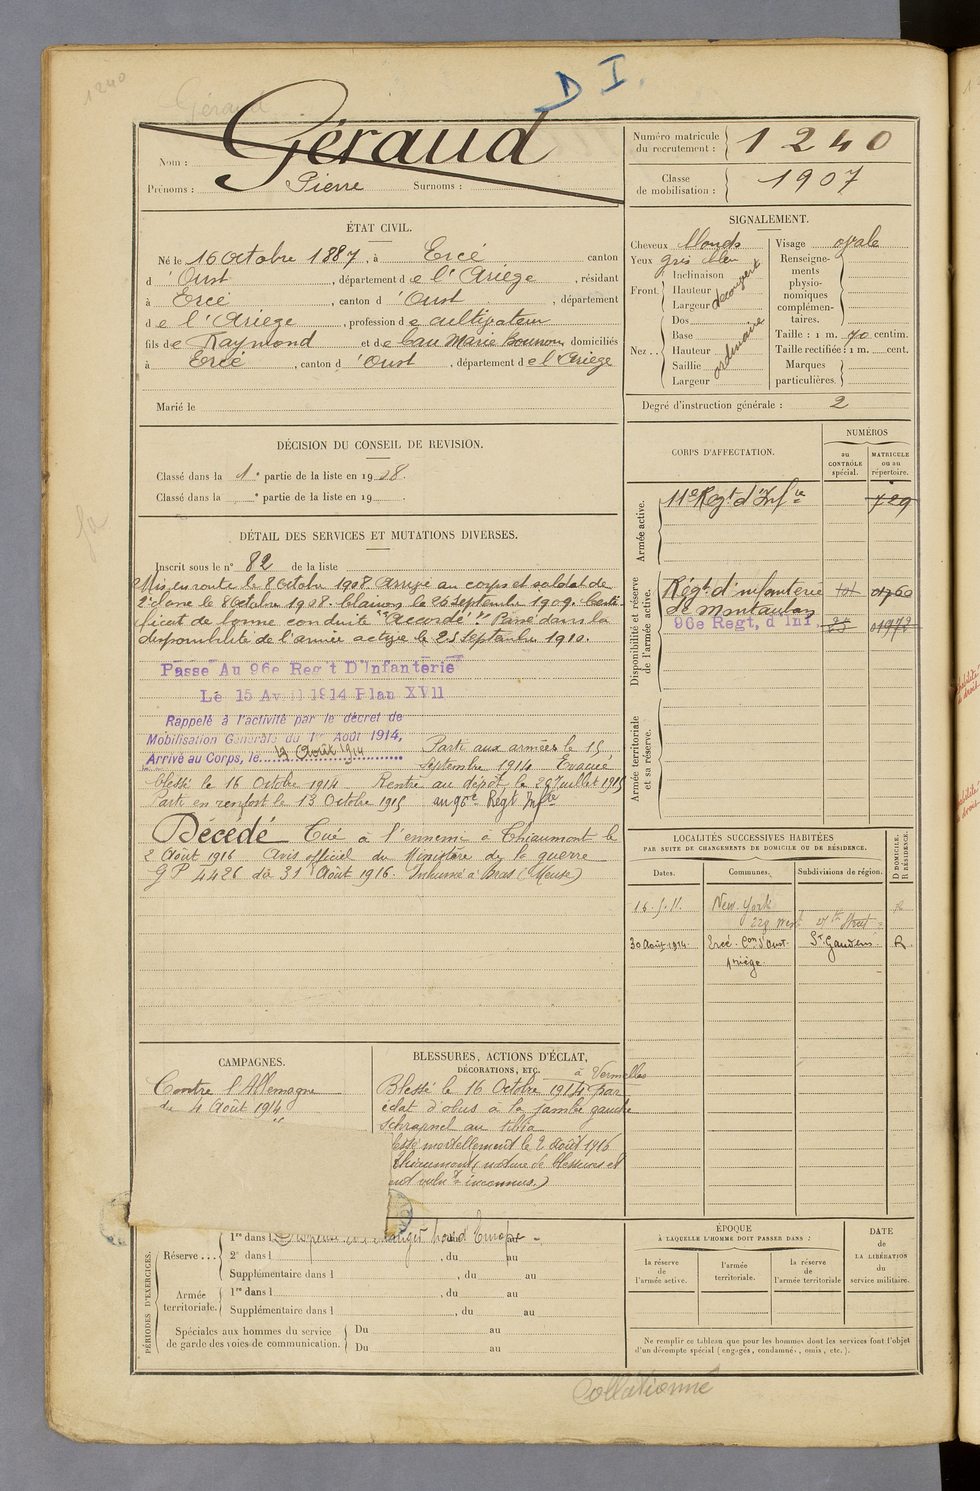 1240
Géraud
D I.
Nom : Géraud
Prénoms : Pierre Surnoms :
Numéro matricule du recrutement : 1240
Classe de mobilisation : 1907
ÉTAT CIVIL.
Né le 16 Octobre 1887, à Ercé canton
d'Oust, département de l'Ariège, résidant
à Ercé, canton d'Oust, département
de l'Ariège, profession de cultivateur
fils de Raymond et de Cau Marie domiciliés
à Ercé, canton d'Oust, département de l'Ariège
Marié le
SIGNALEMENT.
Cheveux blonds
Yeux gris bleu
Front. Inclinaison
Hauteur découvert
Largeur
Nez .. Dos
Base
Hauteur ordinaire
Saillie
Largeur
Visage ovale
Renseignements physionomiques complémentaires.
Taille : 1 m. 70 centim.
Taille rectifiée : 1 m. cent.
Marques particulières.
Degré d'instruction générale : 2
DÉCISION DU CONSEIL DE REVISION.
Classé dans la 1e partie de la liste en 1908.
Classé dans la e partie de la liste en 19 .
DÉTAIL DES SERVICES ET MUTATIONS DIVERSES.
Inscrit sous le n° 82 de la liste
Mis en route le 8 Octobre 1908. Arrivé au corps et soldat de
2e classe le 8 Octobre 1908. Clairon le 26 Septembre 1909. Certi-
ficat de bonne conduite "Accordé". Passé dans la
disponibilité de l'armée active le 25 Septembre 1910.
Passe Au 96e Reg't D'Infanterie
Le 15 Avril 1914 Plan XVII
Rappelé à l'activité par le décret de
Mobilisation Générale du 1er Août 1914,
Arrivé au Corps, le Août 1914 Parti aux armées le 15
Septembre 1914 Evacué
blessé le 16 Octobre 1914 Rentré au dépôt le 29 Juillet 1915
Parti en renfort le 13 Octobre 1915 au 96e Regt Infie
Décédé Tué à l'ennemi à Thiaumont le
2 Août 1916 Avis officiel du Ministère de la guerre
GP 4426 du 31 Août 1916. Inhumé à Bras (Meuse)
CORPS D'AFFECTATION.
NUMÉROS
au CONTRÔLE spécial.
MATRICULE ou au répertoire.
Armée active.
11e Regt d'Infie 729
Disponibilité et réserve de l'armée active.
Régt d'infanterie
de Montauban
96e Regt, d'Inf. 25
Armée territoriale et sa réserve.
LOCALITÉS SUCCESSIVES HABITÉES
PAR SUITE DE CHANGEMENTS DE DOMICILE OU DE RÉSIDENCE.
Dates. Communes. Subdivisions de région. D DOMICILE. R RÉSIDENCE.
New-York R
229 West Street
30 Août 1914. Ercé. Con d'Oust. St Gaudens. R
Ariège.
CAMPAGNES.
Contre l'Allemagne
du 4 Août 1914
BLESSURES, ACTIONS D'ÉCLAT,
DÉCORATIONS, ETC.
à Vermelles
Blessé le 16 Octobre 1914 par
éclat d'obus à la jambe gauche
Schrapnel au tibia
lessé mortellement le 2 août 1916
Thiaumont (nature de blessures et
inconnus.)
PÉRIODES D'EXERCICES.
Réserve ... 1re dans l Dispensé étranger hors d'Europe
2e dans l , du au
Supplémentaire dans l , du au
Armée territoriale. 1re dans l , du au
Supplémentaire dans l , du au
Spéciales aux hommes du service de garde des voies de communication. Du au
Du au
ÉPOQUE
À LAQUELLE L'HOMME DOIT PASSER DANS :
la réserve de l'armée active.
l'armée territoriale.
la réserve de l'armée territoriale
DATE de LA LIBÉRATION du service militaire.
Ne remplir ce tableau que pour les hommes dont les services font l'objet
d'un décompte spécial (engagés, condamnés, omis, etc.).
Collationné